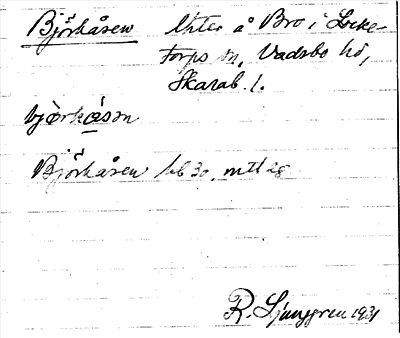 Björkåsen Uster å Bro i Locke-
torps sn, Vadsbo hd,
Skarab. l.
bjòrkåsən
Björkåsen hb 30. mtl 28
R. Ljunggren 1931